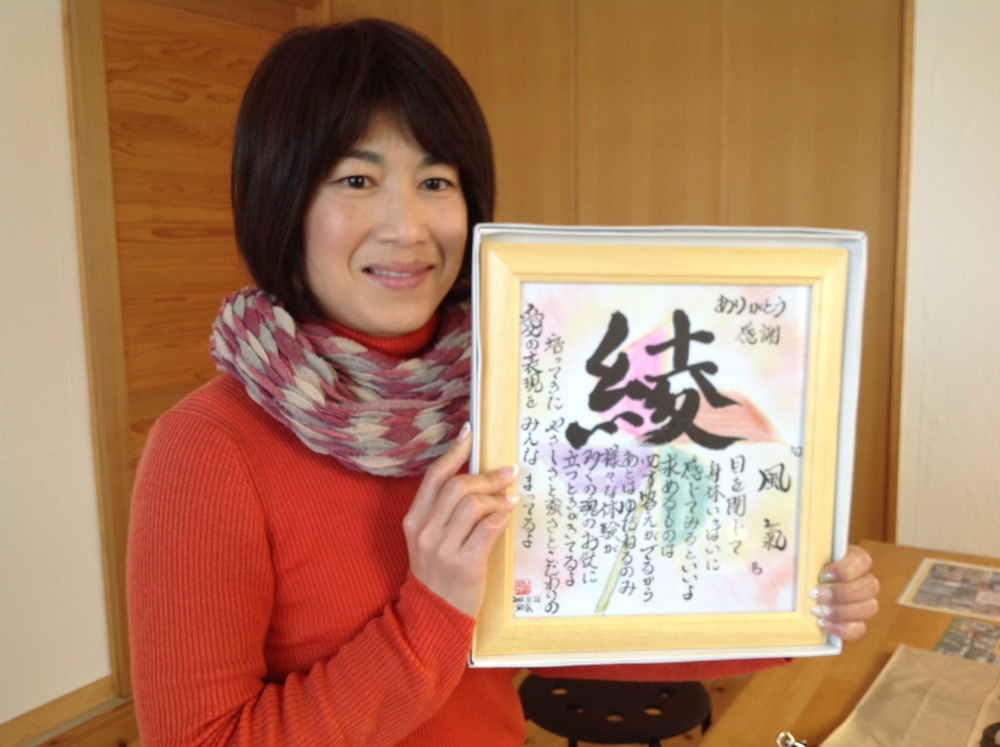 ありがとう
感謝
綾
「風
氣」
目を閉じて
身体いっぱいに
感じてみるといいよ
求めるものは
必ず答えがでるから
あとはゆだねるのみ
様々な体験が
多くの魂のお役に
立つときがきてるよ
培ってきた やさしさと強さとこだわりの
愛の表現を みんな まってるよ